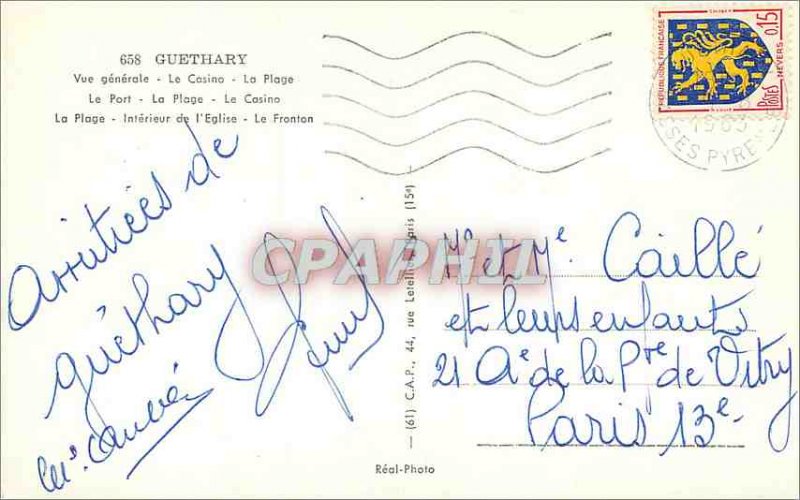 658 GUETHARY
Vue générale - Le Casino - La Plage
Le Port - La Plage - Le Casino
La Plage - Intérieur de l'Eglise - Le Fronton
REPUBLIQUE FRANÇAISE
0,15
NEVERS
POSTES
SES PYRE
Amitiées de
Guéthary
CPARPHIL
(61) C.A.P., 44, rue Letellier, Paris (15e)
Mr et Me. Caillé
et leurs enfants
21 Ae de la Pte de Vitry
Paris 13e
Réal-Photo